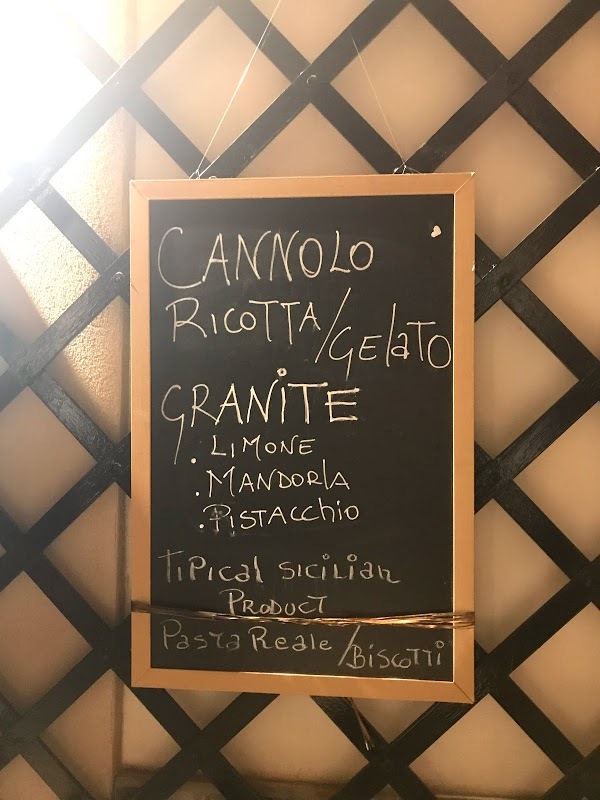 CANNOLO
RICOTTA/GELATO
GRANITE
. LIMONE
. MANDORLA
. PISTACCHIO
TIPICAL SICILIAN
PRODUCT
PASTA REALE/BISCOTTI